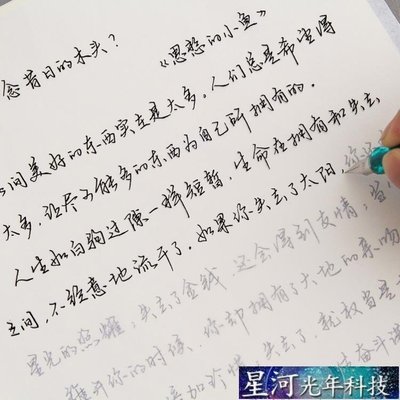 念昔日的木头？ 《思愁的小鱼》
间美好的东西实在是太多，人们总是希望得
太多，让尽可能多的东西为自己所拥有的。
人生如白驹过隙一样短暂，生命在拥有和失去
之间，不经意地流干了。如果你失去了太阳，你还
星光的照耀，失去了金钱，还会得到友情，当
离开你的时候，你却拥有了大地的亲吻
倍加珍惜，失去了，就权当是
奋斗
星河光年科技